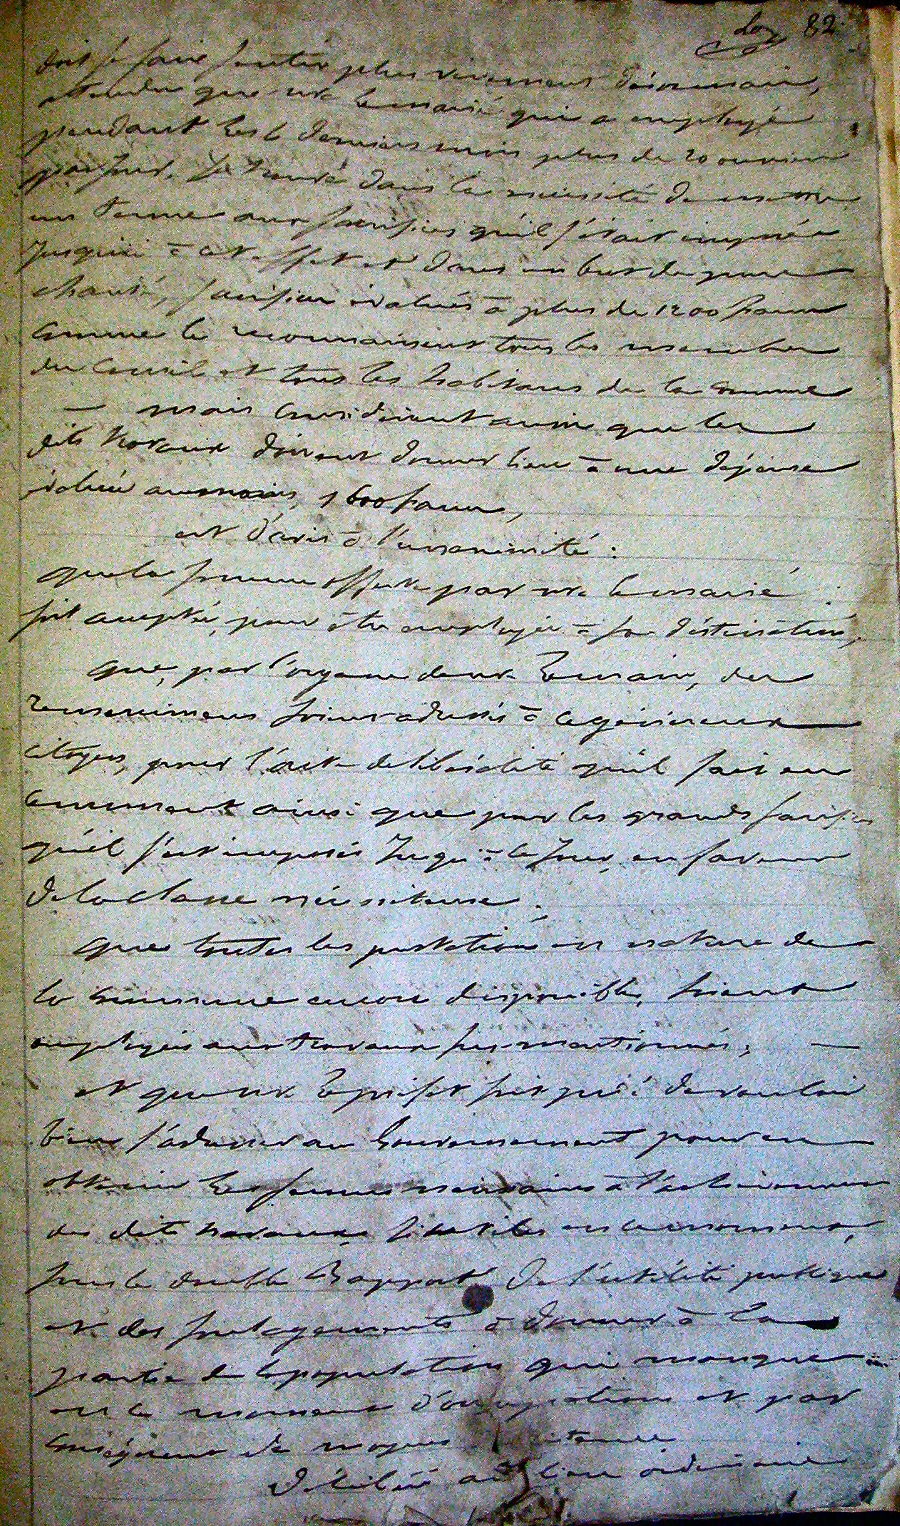 82
doit se faire sentir plus vivement désormais,
attendu que mr Lemarié qui a employé
pendant les 6 derniers mois plus de 20 ouvriers
par jour, se trouve dans la nécessité de mettre
un terme aux sacrifices qu'il s'était imposés
jusqu'ici à cet effet et dans un but de pure
charité, sacrifices évalués à plus de 1200 francs
comme le reconnaissent tous les membres
du Conseil et tous les habitans de la commune
mais considérant aussi que les
dits travaux doivent donner lieu à une dépense
évaluée au moins 1600 francs,
est d'avis à l'unanimité :
que la somme offerte par mr Lemarié
soit acceptée, pour être employée à sa destination,
que, par l'organe de mr le maire, des
remerciemens soient adressés à ce généreux
citoyen, pour l'acte de libéralité qu'il fait en
ce moment ainsi que pour les grands sacrifices
qu'il s'est imposés jusqu'à ce jour, en faveur
de la classe nécessiteuse ;
que toutes les prestations en nature de
la commune encore disponibles, soient
employées aux travaux sus mentionnés ;
et que mr le préfet soit prié de vouloir
bien s'adresser au Gouvernement pour en
obtenir les sommes nécessaires à l'achèvement
des dits travaux, si utiles en ce moment,
sous le double rapport de l'utilité publique
et des soulagements à donner à la
partie de la population qui manque
en ce moment d'occupations et par
conséquent de moyens
Délibéré au lieu ordinaire